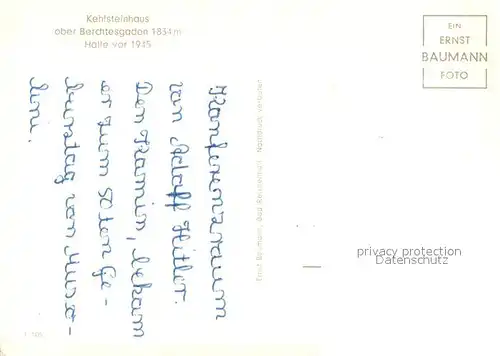 Kehlsteinhaus
ober Berchtesgaden 1834 m
Halle vor 1945
EIN
ERNST
BAUMANN
FOTO
Konferenzraum
von Adolf Hitler.
Den Kamin, bekam
er zum 50ten Ge-
burtstag von Musso-
lini.
Ernst Baumann, Bad Reichenhall Nachdruck verboten
privacy protection
Datenschutz